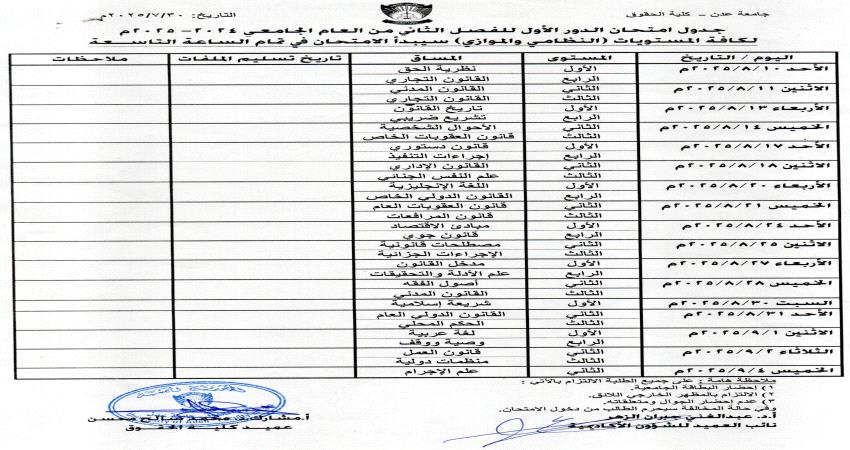 جامعة عدن - كلية الحقوق
التاريخ: ٢٠٢٥/٧/٣٠م
جدول امتحان الدور الأول للفصل الثاني من العام الجامعي ٢٠٢٤- ٢٠٢٥م
لكافة المستويات (النظامي والموازي) سيبدأ الامتحان في تمام الساعة التاسعة
اليوم / التاريخ المستوى المساق تاريخ تسليم الملفات ملاحظات
الأحد ٢٠٢٥/٨/١٠م الأول نظرية الحق
الرابع القانون التجاري
الاثنين ٢٠٢٥/٨/١١م الثاني القانون المدني
الثالث القانون التجاري
الأربعاء ٢٠٢٥/٨/١٣م الأول تاريخ القانون
الرابع تشريع ضريبي
الخميس ٢٠٢٥/٨/١٤م الثاني الأحوال الشخصية
الثالث قانون العقوبات الخاص
الأحد ٢٠٢٥/٨/١٧م الأول قانون دستوري
الرابع إجراءات التنفيذ
الاثنين ٢٠٢٥/٨/١٨م الثاني القانون الإداري
الثالث علم النفس الجنائي
الأربعاء ٢٠٢٥/٨/٢٠م الأول اللغة الإنجليزية
الرابع القانون الدولي الخاص
الخميس ٢٠٢٥/٨/٢١م الثاني قانون العقوبات العام
الثالث قانون المرافعات
الأحد ٢٠٢٥/٨/٢٤م الأول مبادئ الاقتصاد
الرابع قانون جوي
الاثنين ٢٠٢٥/٨/٢٥م الثاني مصطلحات قانونية
الثالث الإجراءات الجزائية
الأربعاء ٢٠٢٥/٨/٢٧م الأول مدخل القانون
الرابع علم الأدلة والتحقيقات
الخميس ٢٠٢٥/٨/٢٨م الثاني أصول الفقه
الثالث القانون المدني
السبت ٢٠٢٥/٨/٣٠م الأول شريعة إسلامية
الأحد ٢٠٢٥/٨/٣١م الثاني القانون الدولي العام
الثالث الحكم المحلي
الاثنين ٢٠٢٥/٩/١م الأول لغة عربية
الرابع وصية ووقف
الثلاثاء ٢٠٢٥/٩/٢م الثاني قانون العمل
الثالث منظمات دولية
الخميس ٢٠٢٥/٩/٤م الثاني علم الإجرام
ملاحظة هامة : على جميع الطلبة الالتزام بالآتي :
١) إحضار البطاقة الجامعية.
٢) الالتزام بالمظهر الخارجي اللائق.
٣) عدم إحضار الجوال ومتعلقاته.
وفي حالة المخالفة سيحرم الطالب من دخول الامتحان.
أ.د. عبدالغني جبران الزهر
نائب العميد للشؤون الأكاديمية
صالح محسن
عميد كلية الحقوق